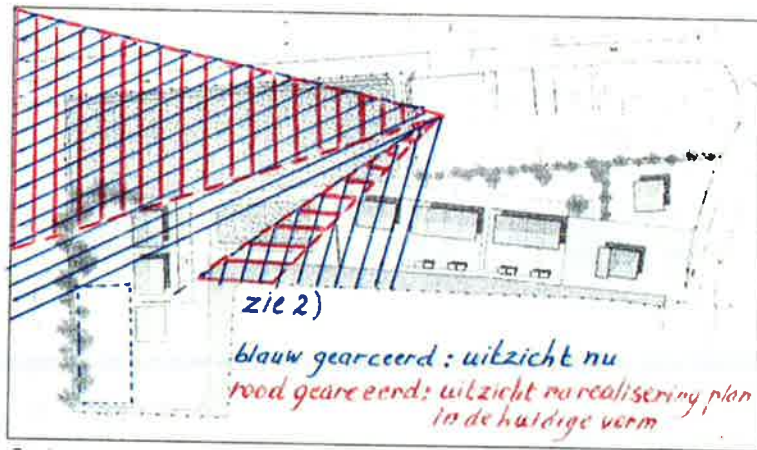 zie 2)
blauw gearceerd : uitzicht nu
rood gearceerd: uitzicht na realisering plan
in de huidige vorm